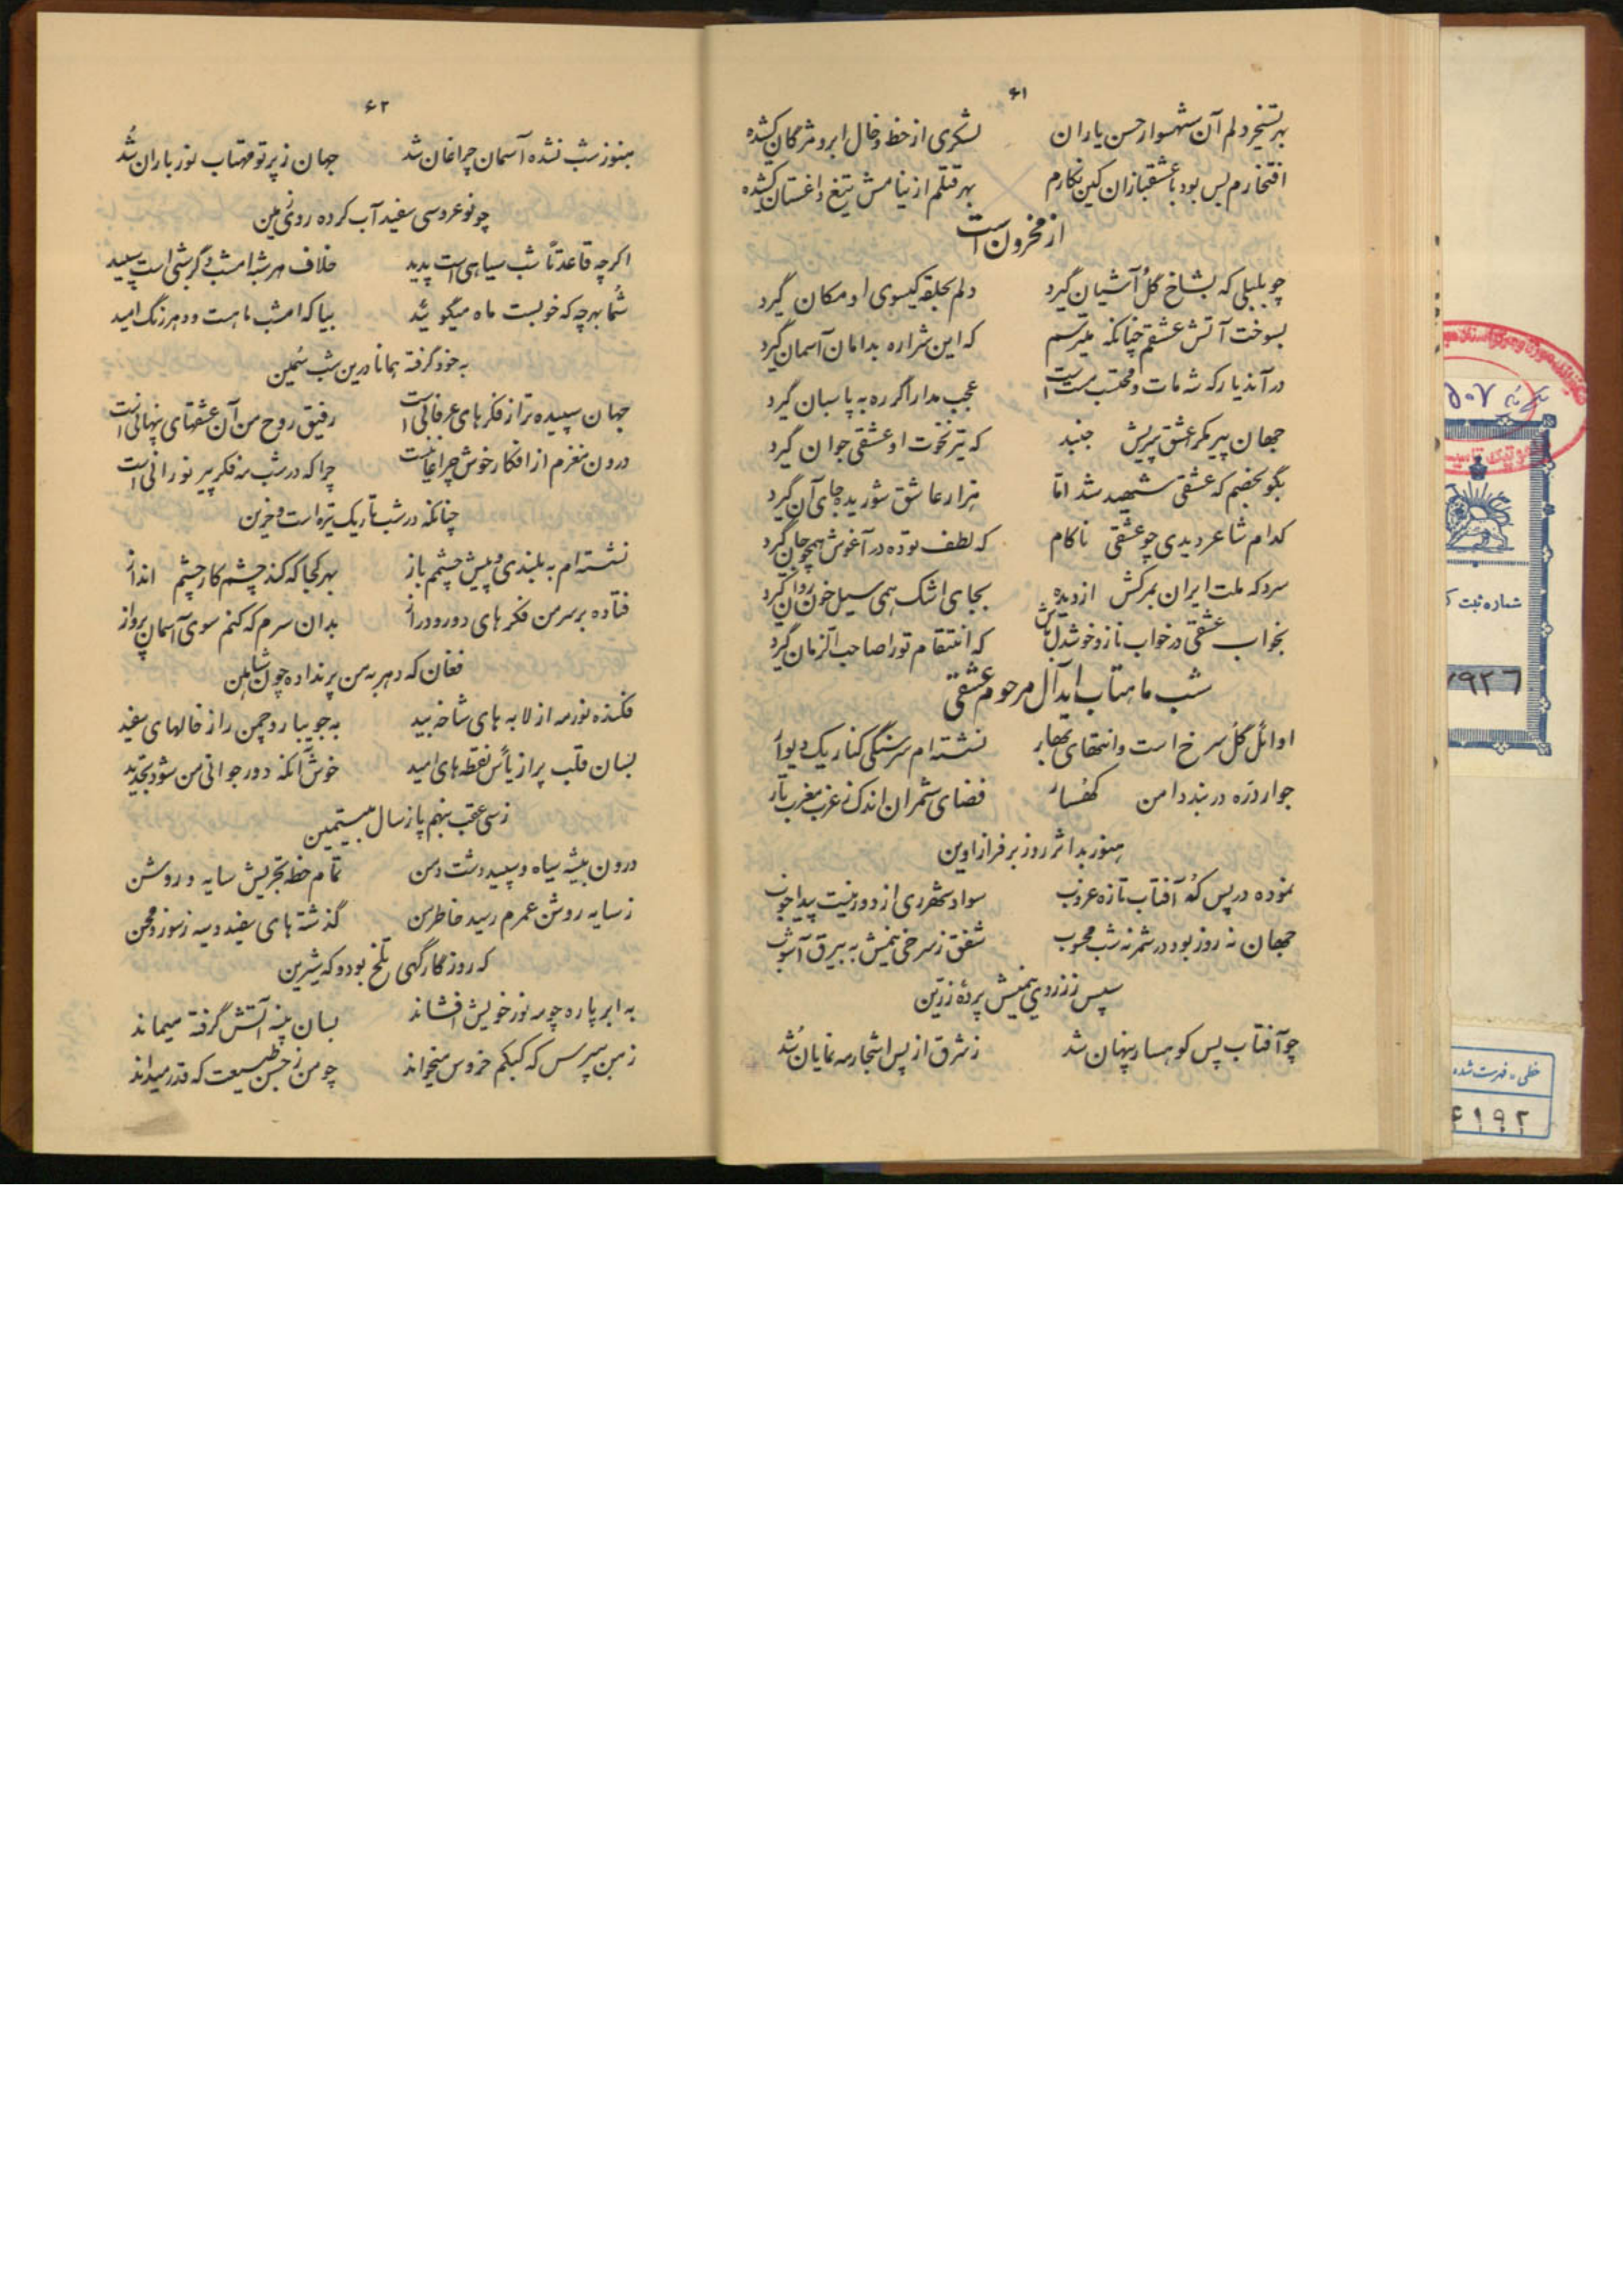 ۶۱
بهر تسخیر دلم آن شهسوار حسن یاران لشکری از خط و خال ابرو مژگان کشده
افتخارم بس بود با عشقبازان کین نگارم بهر قتلم از نیامش تیغ داغستان کشده
از مخزون است
چو بلبلی که بشاخ گل آشیان گیرد دلم بحلقه گیسوی او مکان گیرد
بسوخت آتش عشقم چنانکه میترسم که این شراره بدامان آسمان گیرد
در آندیار که شه مات و محتسب مست است عجب مدار اگر ره به پاسبان گیرد
جهان پیر مگر عشق پریش جنبد که تیر نخوت او عشقی جوان گیرد
بگو بخصم که عشقی شهید شد اما هزار عاشق شوریده جای آن گیرد
کدام شاعر دیدی چو عشقی ناکام که لطف توده در آغوش همچو جان گیرد
سزد که ملت ایران بمرکش از دیده بجای اشک همی سیل خون روان گیرد
بخواب عشقی در خواب ناز و خوشدل باش که انتقام تو را صاحب الزمان گیرد
شب ماهتاب ایدآل مرحوم عشقی
اوائل گل سرخ است و انتهای بهار نشسته ام سر سنگی کنار یک دیوار
جوار دره دربند دامن کهسار فضای شمران اندک ز غرب مغرب تار
هنوز بد اثر روز بر فراز اوین
نموده در پس که آفتاب تازه غروب سواد شهر ری از دور نیست پیدا خوب
جهان نه روز بود در شمر نه شب محسوب شفق ز سرخی نیمیش به بیرق آشوب
سپس ز زردی نیمیش پرده زرین
چو آفتاب پس کوهسار پنهان شد ز شرق از پس اشجار مه نمایان شد
۶۲
هنوز شب نشده آسمان چراغان شد جهان ز پرتو مهتاب نور باران شد
چو نو عروسی سفید آب کرده روی زمین
اگر چه قاعدتاً شب سیاهی است پدید خلاف هر شبه امشب دگر شبی است سپید
شما بهر چه که خوبست ماه میگوئید بیا که امشب ماهست و دهر رنگ امید
به خود گرفته همانا درین شب سیمین
جهان سپیده تر از فکرهای عرفانی است رفیق روح من آن عشقهای پنهانی است
درون مغزم از افکار خوش چراغانیست چرا که در شب مه فکر پیر نورانی است
چنانکه در شب تاریک تیره است و حزین
نشسته ام به بلندی و پیش چشمم باز بهر کجا که کند چشم کار چشم انداز
فتاده بر سر من فکر های دور و دراز بدان سرم که کنم سوی آسمان پرواز
فغان که دهر به من پر نداده چون شاهین
فکنده نور مه از لا به های شاخه بید به جویبار و چمن زار خالهای سفید
بسان قلب پر از یأس نقطه های امید خوش آنکه دور جوانی من شود تجدید
ز سی عقب بنهم پا ز سال بیستمین
درون بیشه سیاه و سپید دشت و دمن تمام خط تجریش سایه و روشن
ز سایه روشن عمرم رسید خاطر من گذشته های سفید و سیه ز سوز و محن
که روزگار گهی تلخ بود و که شیرین
به ابر پاره چو مه نور خویش افشاند بسان پنبه آتش گرفته میماند
ز من بپرس که کبکم خروس میخواند چو من ز حسن طبیعت که قدر میداند
شماره ثبت ک
۷۹۲۶
خطی - فهرست شده
۶۱۹۲